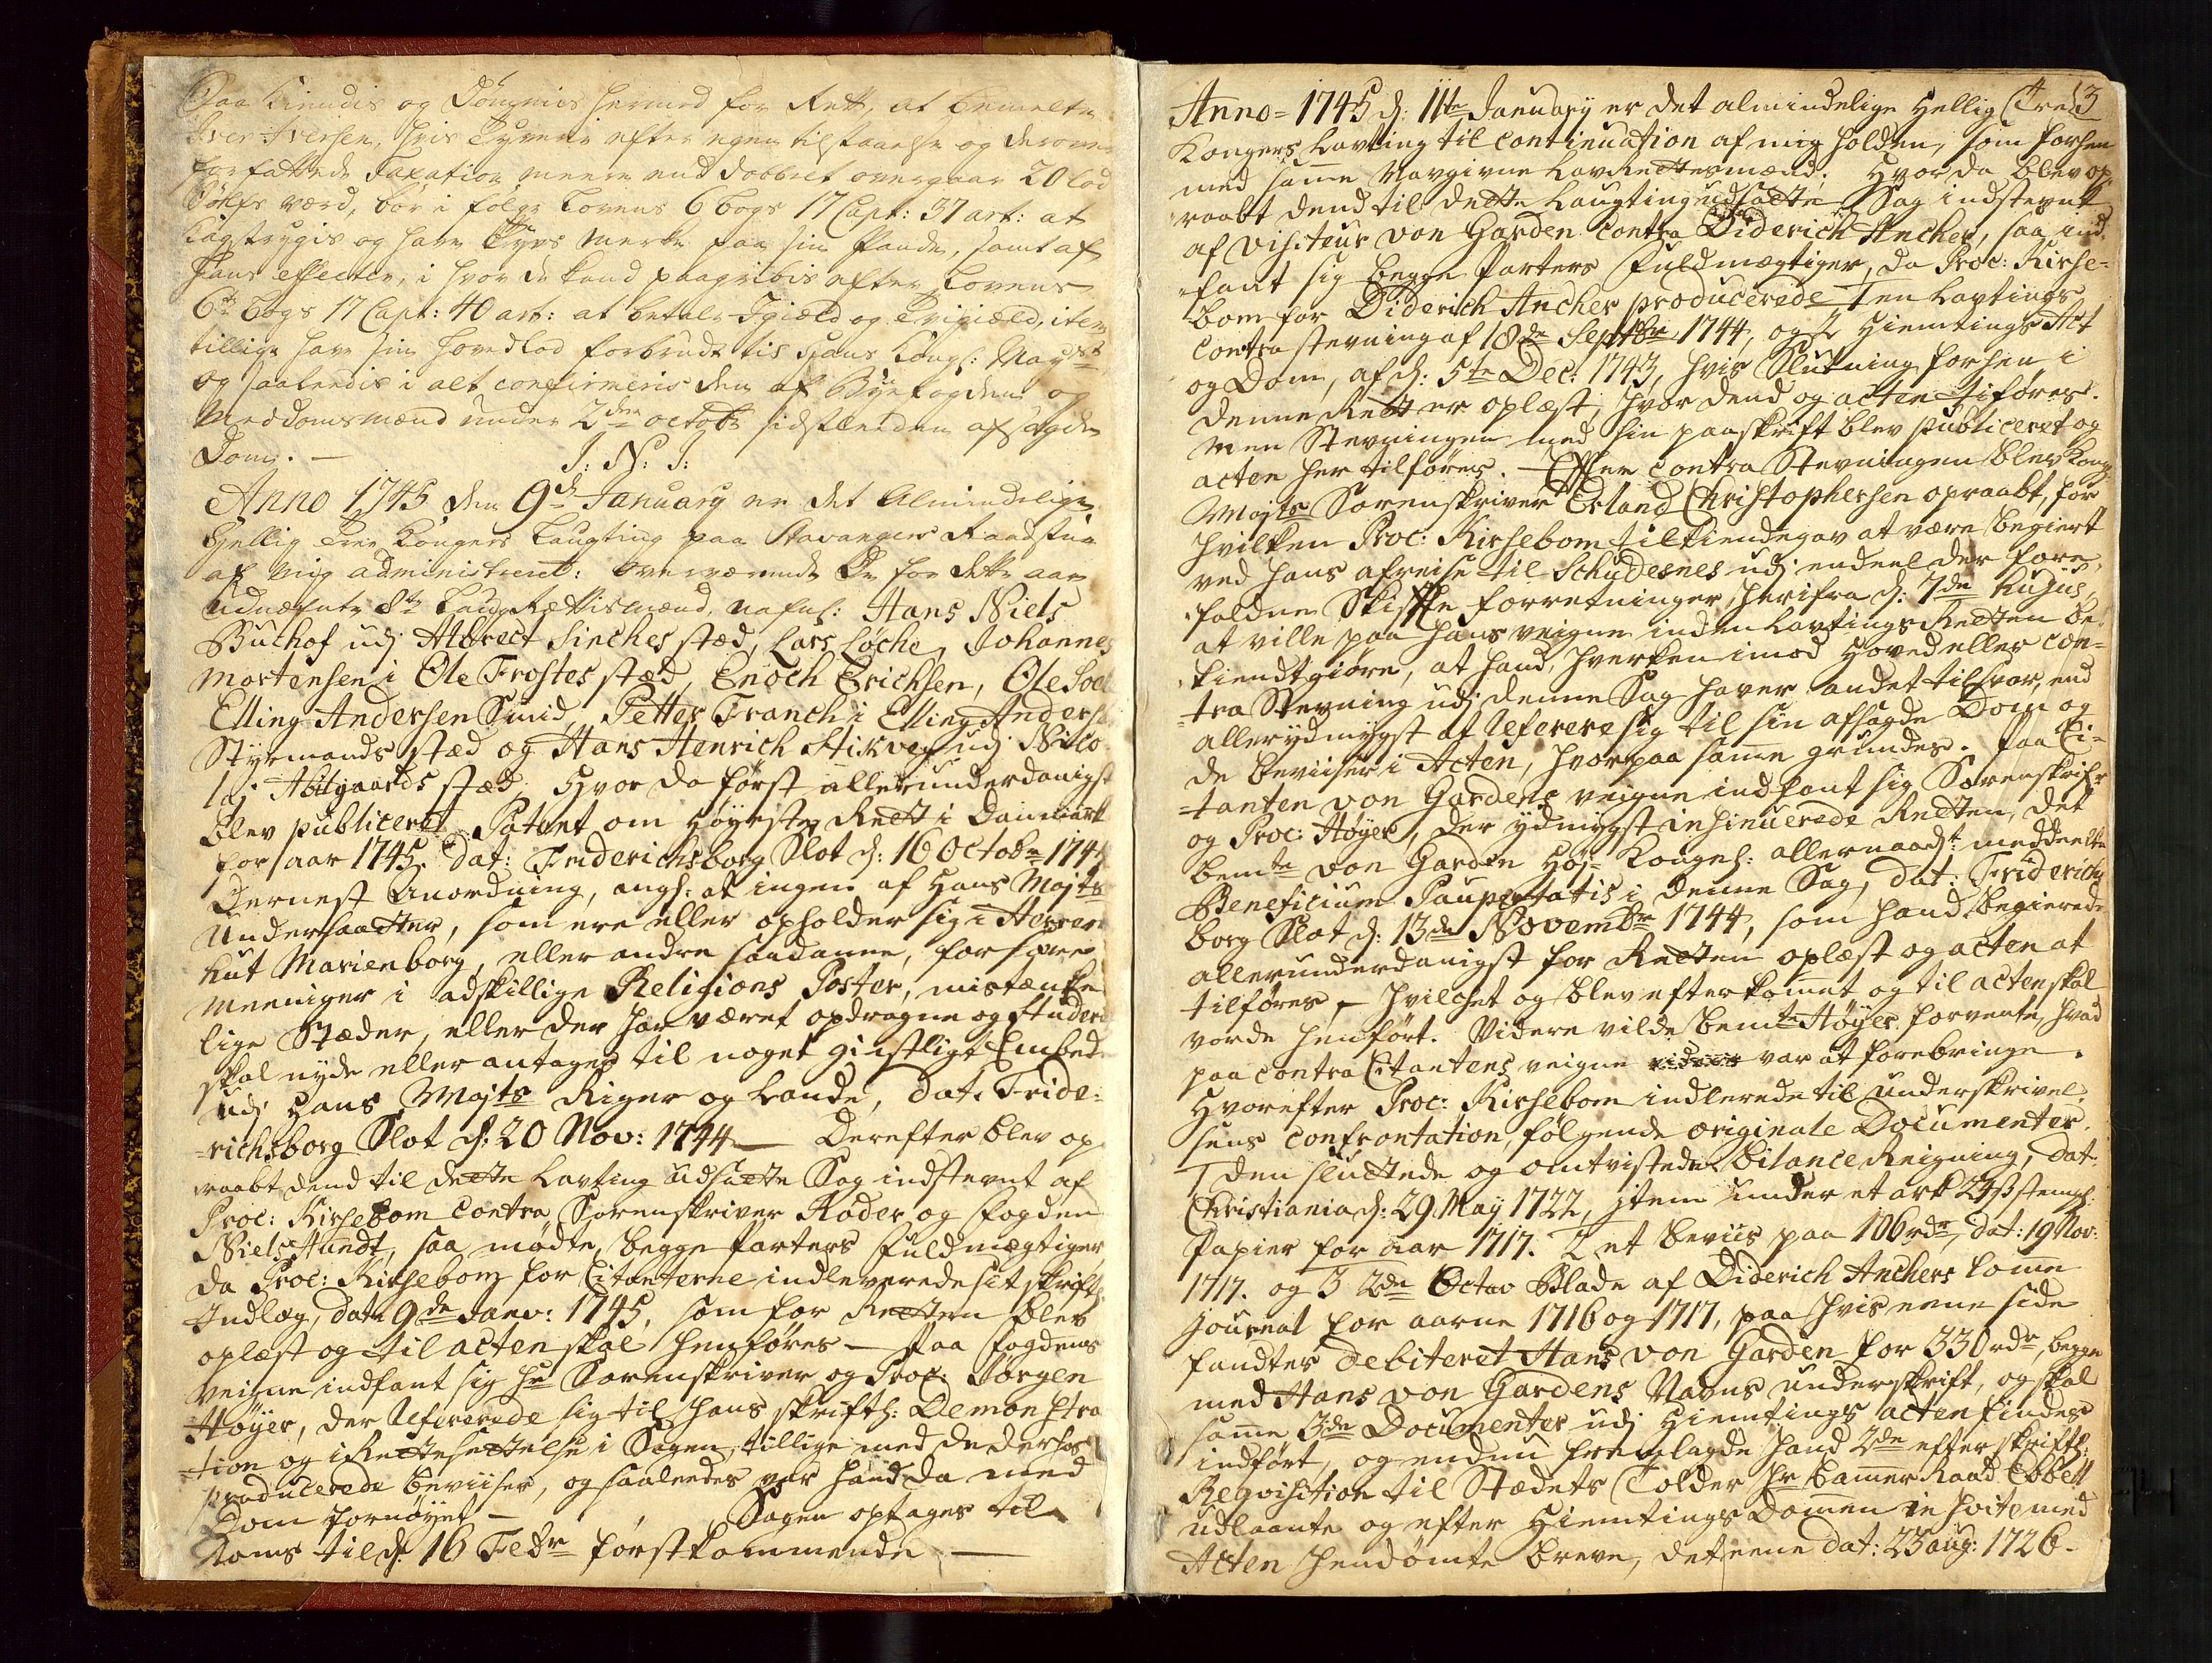 Saa kiendis og dømmis hermed for Rett, at bemelte
Iver Iversen, hvis Tyverie efter egen tilstaaelse og derover
forfattede Taxation meere end dobbelt overgaar 20 lod
Sølfs værd, bør i følge Lovens 6 bogs 17 Capt: 37 art: at
Kagstrygis og have Tyvs Merke paa sin Pande, samt af
hans effecter, i hvor de kand paagribis efter Lovens
6te bogs 17 Capt: 40 art: at betale Igield og Tvigield, item
tillige have sin hovedlod forbrudt til Hans Kongl: Mayst
og saaledis i alt confirmeris den af Byefogden og
Meddomsmænd under 2den octobr sidstleeden afsagde
Dom. —
I: N: I:
Anno 1745 den 9de January er det Almindelige
Hellig Tree Kongers Laugting paa Stavanger Raadstue
af mig administreret: overværende De for dette aar
udnæfnte 8te LaugRettismænd, nafnl: Hans Niels
Buchof udj Albrect Sinches stæd, Lars Løche, Johannes
Mortensen i Ole Frostes stæd, Enoch Erichsen, Ole
Elling Andersen Smid, Petter Franch i Elling Anders
Styrmands stæd og Hans Henrich Stikver udj Nico
laj Abilgaards stæd, Hvor da først allerunderdanigst
blev publiceret Patent om Høyeste Rett i Danmark
for aar 1745. dat: Friderichsborg Slot d: 16 Octobr 1744
Dernest Anordning, angl: at ingen af Hans Majts
Undersaatter, som ere eller opholder sig i Herren
hut Marienborg, eller andre saadanne, for
Meeninger i adskillige Religions Poster, mistænke
lige Stæder, eller der har været opdragne og studeret
skal nyde eller antages til noget giestligt Embede
udj Hans Majts Riger og Lande, dat. Fride-
richsborg Slot d: 20 Nov: 1744 — Derefter blev op
raabt dend til dette Lavting udsatte Sag indstevnt af
Proc: Kirsebom contra Sorenskriver Rader og Fogden
Niels Hundt, saa mødte begge Parters Fuldmægtiger
da Proc: Kirsebom for Citanterne indleverede sit skriftl:
Indlæg, dat. 9de Janv: 1745, som for Retten blev
oplæst og til acten skal henføres — Paa Fogdens
veigne indfant sig Hr Sorenskriver og Proc: Jørgen
Høyer, der refererede sig til hans skriftl: Demonstra
tion og iRettesættelse i Sagen, tillige med de derhos
producerede beviiser, og saaledes var hand da med
Dom fornøyet — Sagen optages til
Doms til d: 16 Febr førstkommende —
Anno 1745 d: 11te January er det almindelige Hellig Tre 3
Kongers Lavting til continuation af mig holden, som forhen
med samme Navgivne LavRettesmænd; Hvor da blev op
raabt dend til dette Laugting udsatte Sag indstevnt
af Visiteur von Garden contra Diderich Ancher, saa ind
fant sig begge Parters Fuldmægtiger, da Proc: Kirse-
bom for Diderich Ancher producerede 1 en Lavtings
Contra stevning af 18de Septbr 1744, og 2 Hiemtings Act
og Dom, af d: 5te Dec: 1743, hvis Slutning forhen i
denne Rett er oplæst, hvor dend og acten tilføres.
Men Stevningen med sin paaskrift blev publiceret og
acten her tilføres. — Efter contra Stevningen blev Kongl:
Majts Sorenskriver Erland Christophersen opraabt, for
hvilken Proc: Kirsebom tilkiendegav at være begiert
ved hans afreise til Schudesnes udj endeel der fore
faldne Skifte forretninger, herifra d: 7de hujus,
at ville paa hans veigne inden Lavtings Retten be-
kiendtgiøre, at hand, hverken imod Hoved eller Con-
tra Stevning udj denne Sag haver andet tilsvar, end
allerydmygst at referere sig til sin afsagde Dom og
de beviiser i Acten, hvorpaa samme grundes. Paa Ci-
tanten von Gardens veigne indfant sig Sorenskriver
og Proc: Høyer, der ydmygst insinuerede Retten, det
bemte von Garden Høj- Kongel: allernaadt: meddeelte
Beneficium Paupertatis i denne Sag, dat: Friderichs
borg Slot d: 13de Novembr 1744, som hand begierede
allerunderdanigst for Retten oplæst og acten at
tilføres, — hvilchet og blev efterkommet og til acten skal
vorde henført. Videre vilde bemte Høyer forvente, hvad
paa contra Citantens veigne var at forebringe.
Hvorefter Proc: Kirsebom indleverede til Underskrivel-
sens confrontation, følgende originale Documenter.
1 den sluttede og omtvistede bilance Reigning, dat:
Christiania d: 29 May 1722, item under et ark 24ß stempl:
Papier for aar 1717. 2 et beviis paa 106 rdr, dat: 19 Nov:
1717. og 3 2de Octav Blade af Diderich Anchers lomme
journal for aarne 1716 og 1717, paa hvis eene side
fandtes debiteret Hans von Garden for 330 rdr, begge
med Hans von Gardens Navns underskrift, og skal
samme 3de Documenter udj Hiemtings acten findes
indført, og endnu fremlagde hand 2de efter skriftl:
Reqvisition til Stædets Tolder Hr CammerRaad Ebbell
udlaante og efter Hiemtings Domen med
Acten henhørte breve, det eene dat: 23 aug: 1726-